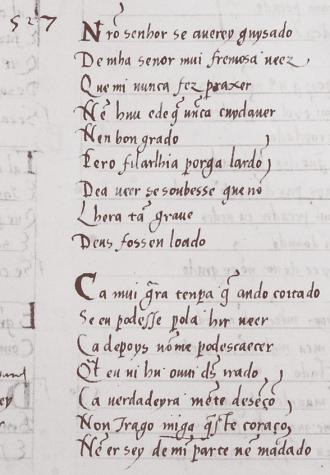 527
Nrõ senhor se averey guysado
De mha senor mui fremosa veez
Que mi nunca fez praxer
Nẽ hnu ede q̃ nũca cuydaver
Nen bon grado
Pero filarlhia por ga lardõ
Dea veer se soubesse que nõ
Lhera tã grave
Deus foss en loado
Ca mui g̃ra tenpa q̃ ando coitado
Se eu podesse pola hir veer
Ca depoys nõ me podescaecer
Qł eu ni hu ouui ds̃ rado
Ca verdadeyra mẽte desẽço
Non Trago miga q̃ste coraço
Nẽ er sey de mi parte nẽ mãdado